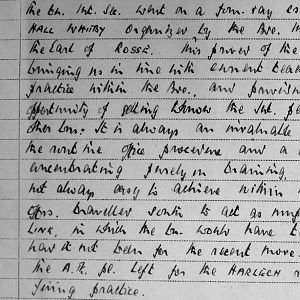 the Bn. Int. Sec. went on a four day ex
HALL WHITBY organized by the Bde. In
the Earl of ROSSE. This proved of the
bringing us in line with current tea
practice within the Bde., and provid
opportunity of getting know the Int. pe
other Bns. It is always an invaluable
the routine office procedure and a
concentrating purely on training
not always easy to achieve within
Offrs. travelled south to act as ump
LINK, in which the Bn. would have t
had it not been for the recent move.
the A. Tk. pl. left for the HARLECH
firing practice.